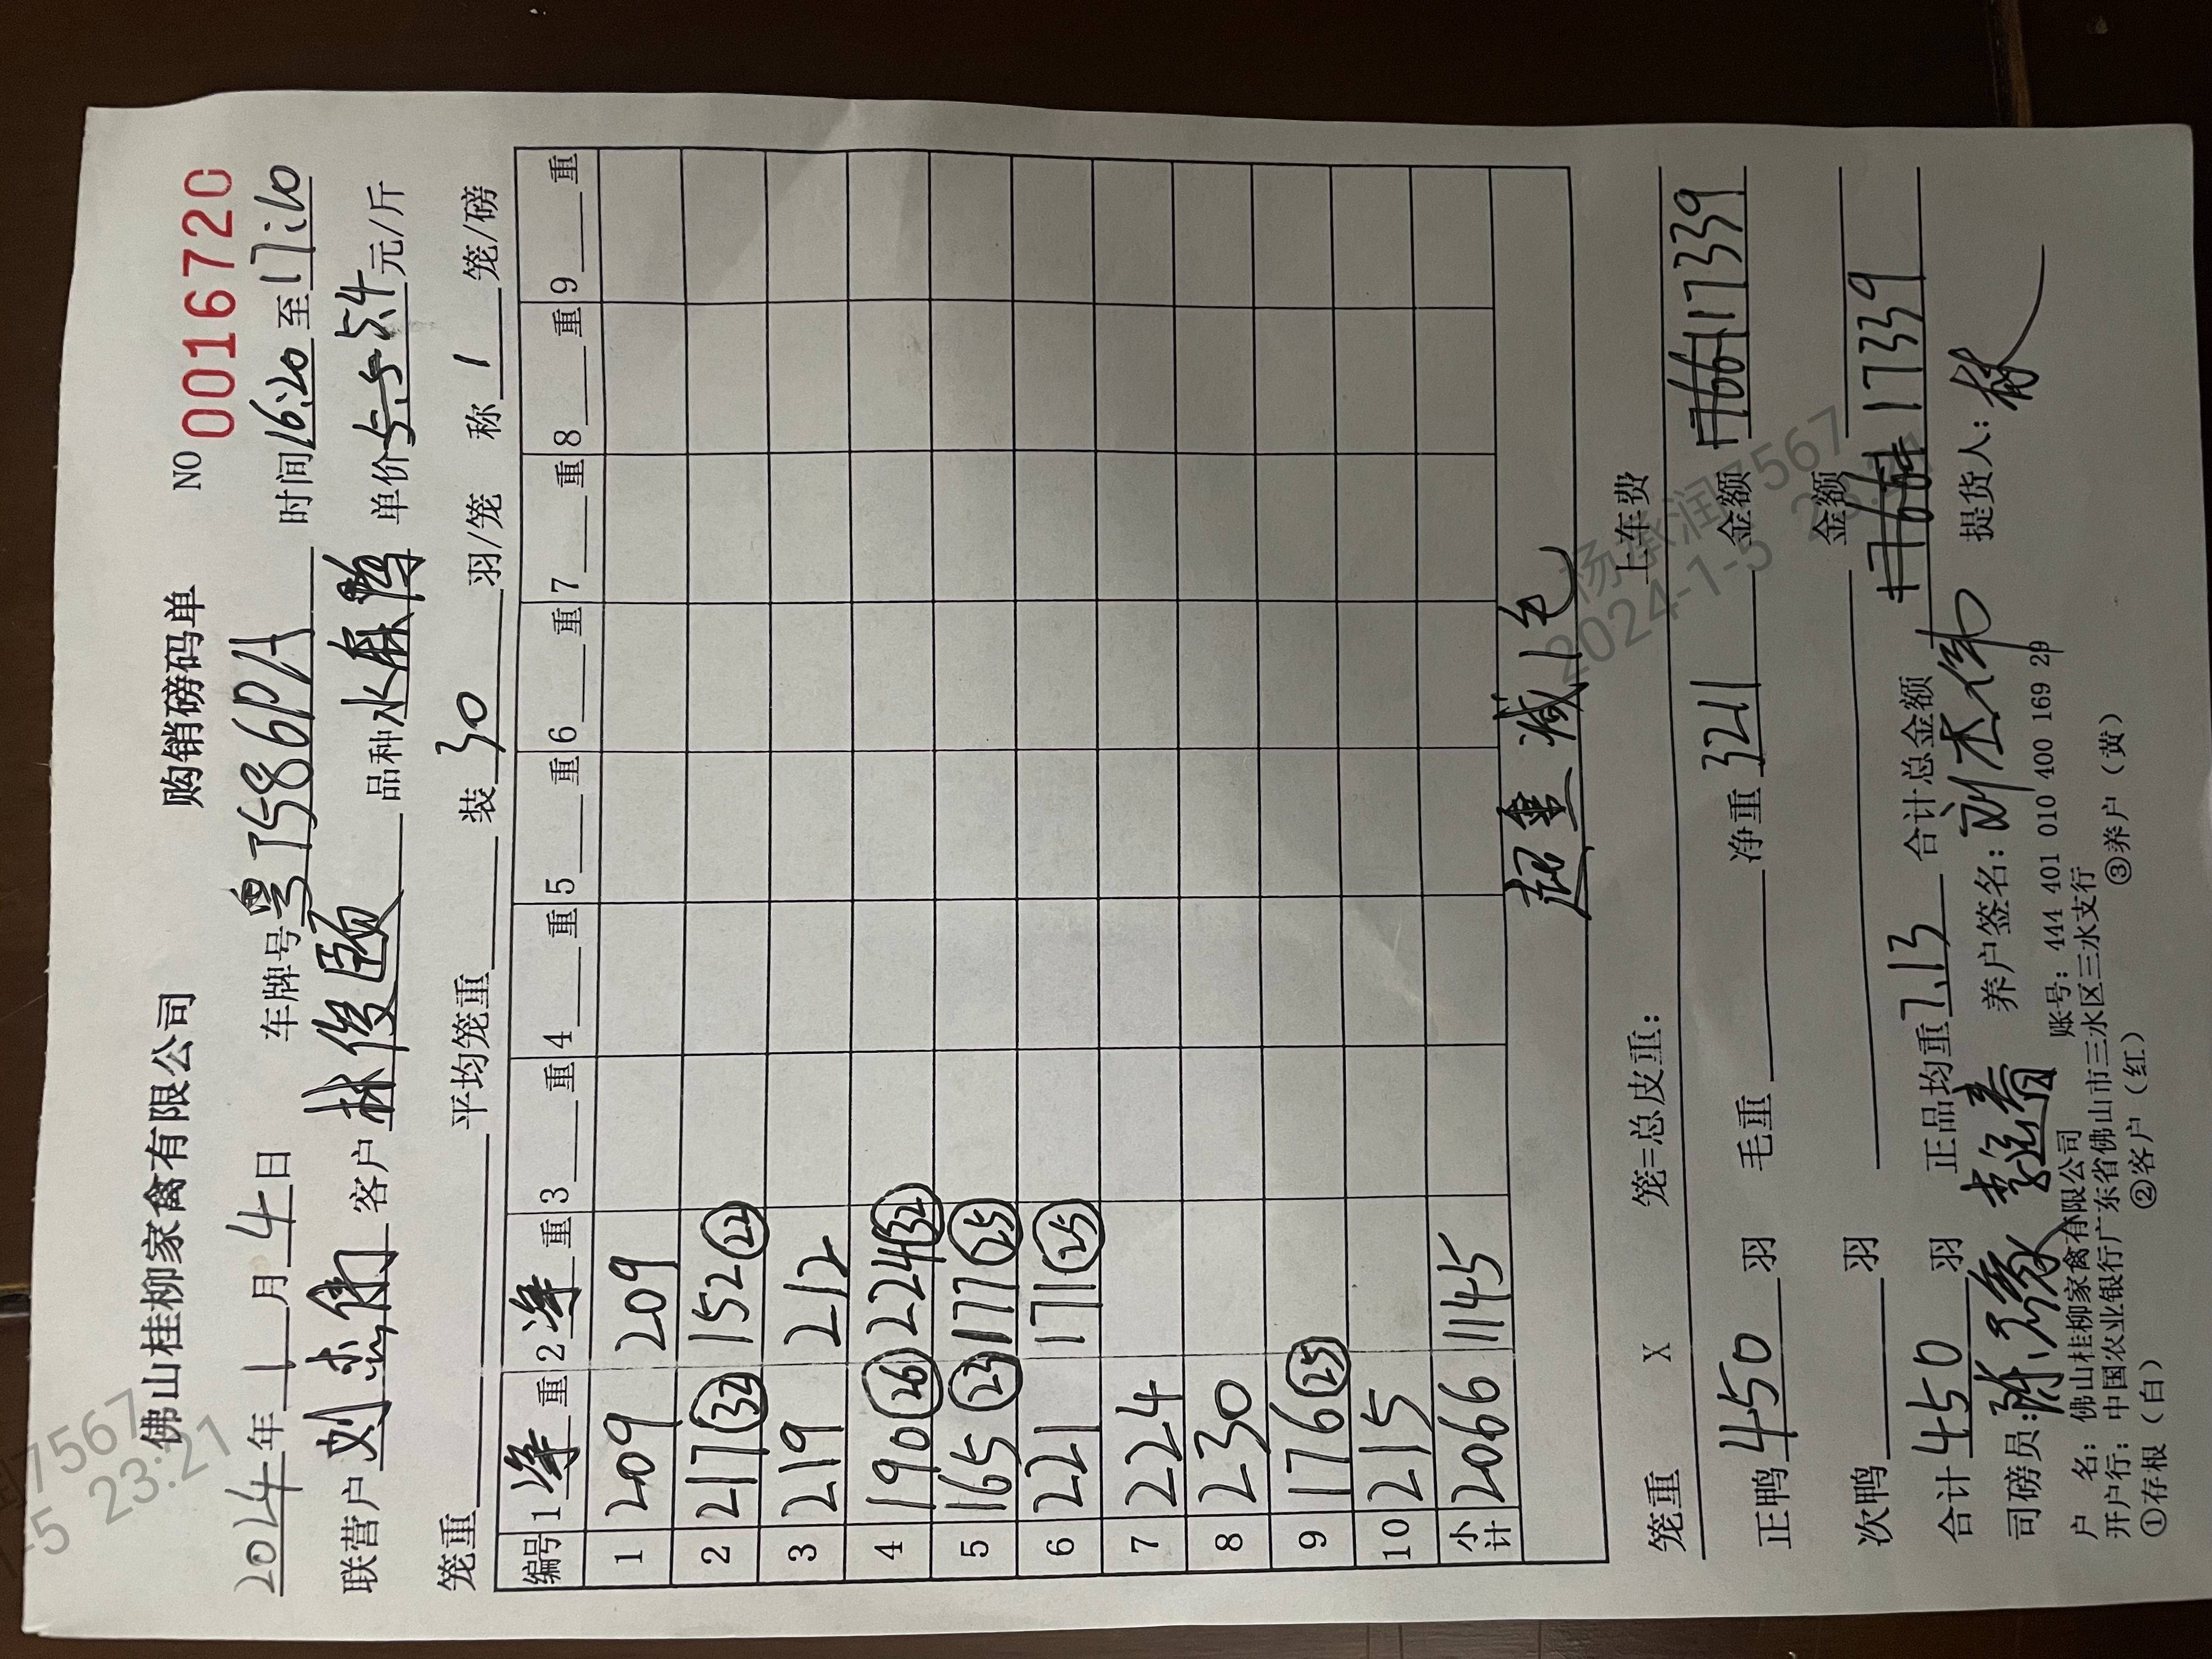 佛山桂柳家禽有限公司 购销磅码单 NO 0016720
2024年1月4日 车牌号粤T586P1 时间16:20至17:10
联营户 刘志衡 客户 林俊颐 品种 水麻鸭 单价 5.4元/斤
笼重 平均笼重 装30羽/笼 称1笼/磅
编号 1净重 2净重 3重 4重 5重 6重 7重 8重 9重
1 209 209
2 217(32) 152(22)
3 219 212
4 190(26) 224(32)
5 165(23) 177(25)
6 221 171(25)
7 224
8 230
9 176(25)
10 215
小计 2066 1145
超重减1毛
笼重 X 笼=总皮重: 上车费
正鸭450羽 毛重 净重3211 金额 17661 17339
次鸭 羽 金额
合计450羽 正品均重7.13 合计总金额 17661 17339
司磅员: 养户签名: 提货人: 林
户 名: 佛山桂柳家禽有限公司 账号: 444 401 010 400 169 29
开户行: 中国农业银行广东省佛山市三水区三水支行
①存根(白) ②客户(红) ③养户(黄)
杨承润7567
2024-1-5 23:21
7567
-5 23:21